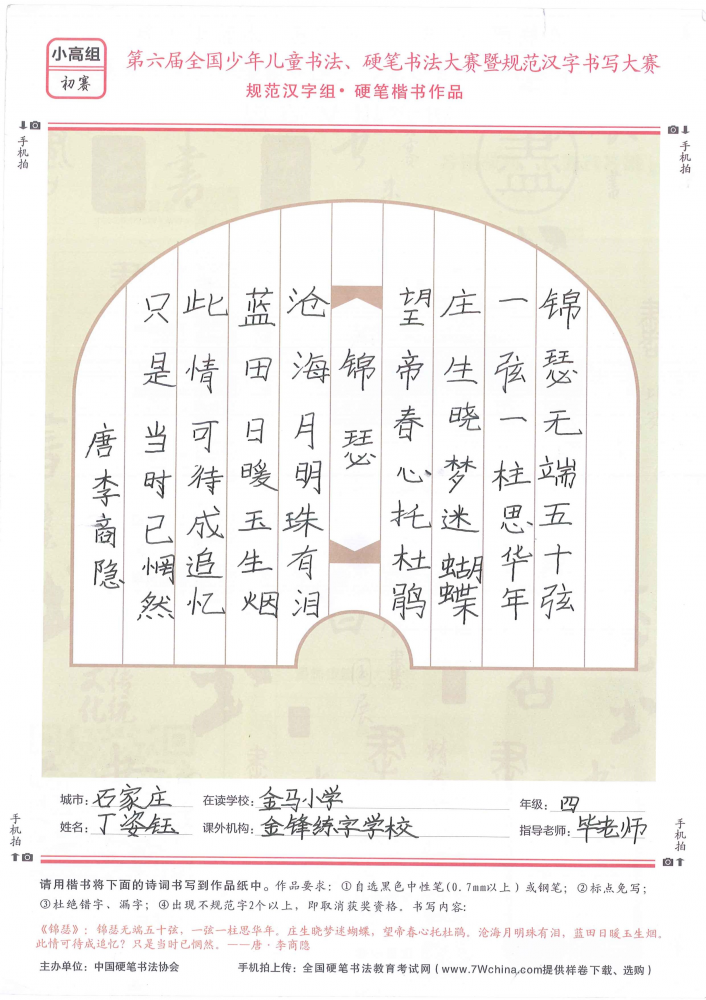 小高组
初赛
第六届全国少年儿童书法、硬笔书法大赛暨规范汉字书写大赛
规范汉字组·硬笔楷书作品
手机拍
手机拍
锦瑟无端五十弦
一弦一柱思华年
庄生晓梦迷蝴蝶
望帝春心托杜鹃
锦瑟
沧海月明珠有泪
蓝田日暖玉生烟
此情可待成追忆
只是当时已惘然
唐李商隐
城市：石家庄 在读学校：金马小学 年级：四
姓名：丁姿钰 课外机构：金锋练字学校 指导老师：毕老师
手机拍
手机拍
请用楷书将下面的诗词书写到作品纸中。作品要求：①自选黑色中性笔(0.7mm以上)或钢笔；②标点免写；
③杜绝错字、漏字；④出现不规范字2个以上，即取消获奖资格．书写内容：
《锦瑟》：锦瑟无端五十弦，一弦一柱思华年。庄生晓梦迷蝴蝶，望帝春心托杜鹃。沧海月明珠有泪，蓝田日暖玉生烟。
此情可待成追忆？只是当时已惘然。——唐·李商隐
主办单位：中国硬笔书法协会 手机拍上传：全国硬笔书法教育考试网（www.7Wchina.com提供样卷下载、选购）